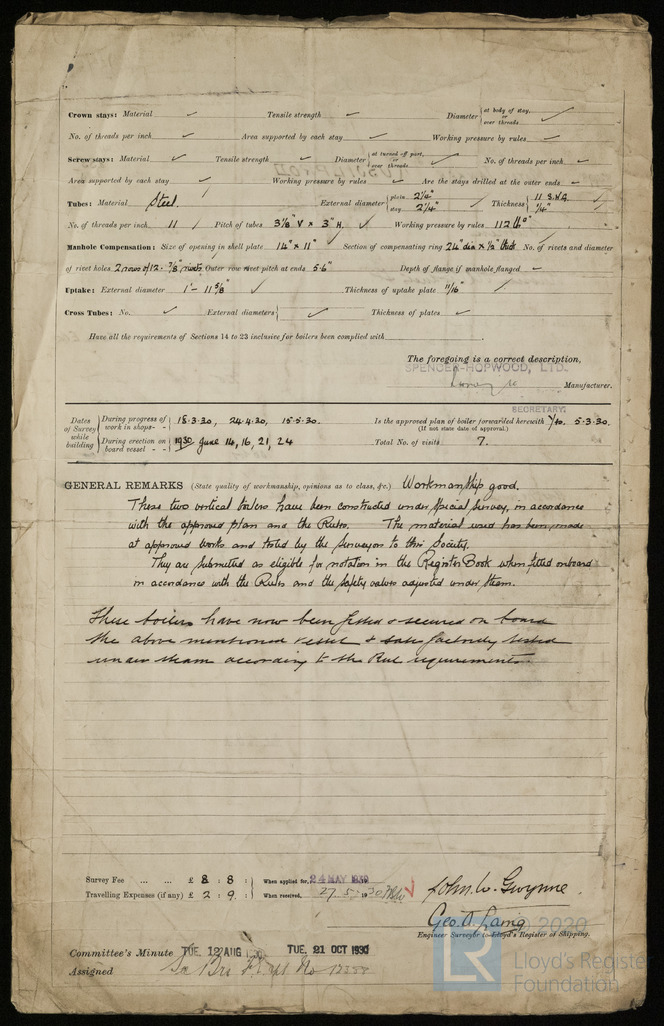 Crown stays: Material ✓ Tensile strength ✓ Diameter { at body of stay, or over threads ✓
No. of threads per inch ✓ Area supported by each stay ✓ Working pressure by rules ✓
Screw stays: Material ✓ Tensile strength ✓ Diameter { at turned off part, or over threads ✓ No. of threads per inch ✓
Area supported by each stay ✓ Working pressure by rules ✓ Are the stays drilled at the outer ends ✓
Tubes: Material Steel. External diameter { plain 2¼" stay 2¼" ✓ Thickness { 11 S.W.G. ¼"
No. of threads per inch 11 ✓ Pitch of tubes 3⅛" V × 3" H. ✓ Working pressure by rules 112 lb□"
Manhole Compensation: Size of opening in shell plate 14" × 11" ✓ Section of compensating ring 24" dia × ½" thick No. of rivets and diameter
of rivet holes 2 rows of 12 - ⅞" rivets Outer row rivet pitch at ends 5·6" Depth of flange if manhole flanged ✓
Uptake: External diameter 1'- 11⅝" ✓ Thickness of uptake plate 11/16" ✓
Cross Tubes: No. ✓ External diameters { ✓ Thickness of plates ✓
Have all the requirements of Sections 14 to 23 inclusive for boilers been complied with
The foregoing is a correct description,
SPENCER-HOPWOOD, LTD.
Manufacturer.
SECRETARY.
Dates of Survey while building { During progress of work in shops - - 18·3·30, 24·4·30, 15·5·30.
Is the approved plan of boiler forwarded herewith 5·3·30.
(If not state date of approval.)
During erection on board vessel - - - 1930 June 14, 16, 21, 24
Total No. of visits 7.
GENERAL REMARKS (State quality of workmanship, opinions as to class, &c.) Workmanship good.
These two vertical boilers have been constructed under Special Survey, in accordance
with the approved plan and the Rules. The material used has been made
at approved works and tested by the Surveyors to this Society.
They are submitted as eligible for notation in the Register Book when fitted onboard
in accordance with the Rules and the safety valves adjusted under steam.
These boilers have now been fitted & secured on board
the above mentioned vessel & satisfactorily tested
under steam according to the Rule requirements.
Survey Fee ... ... £ 8 : 8 : When applied for, 24 MAY 1930
Travelling Expenses (if any) £ 2 : 9 : When received, 27.5.1930
John W. Gwynne.
Geo. A. Laing
Engineer Surveyor to Lloyd's Register of Shipping.
Committee's Minute TUE. 12 AUG 1930 TUE. 21 OCT 1930
Assigned
© 2020
LR
Lloyd's Register
Foundation